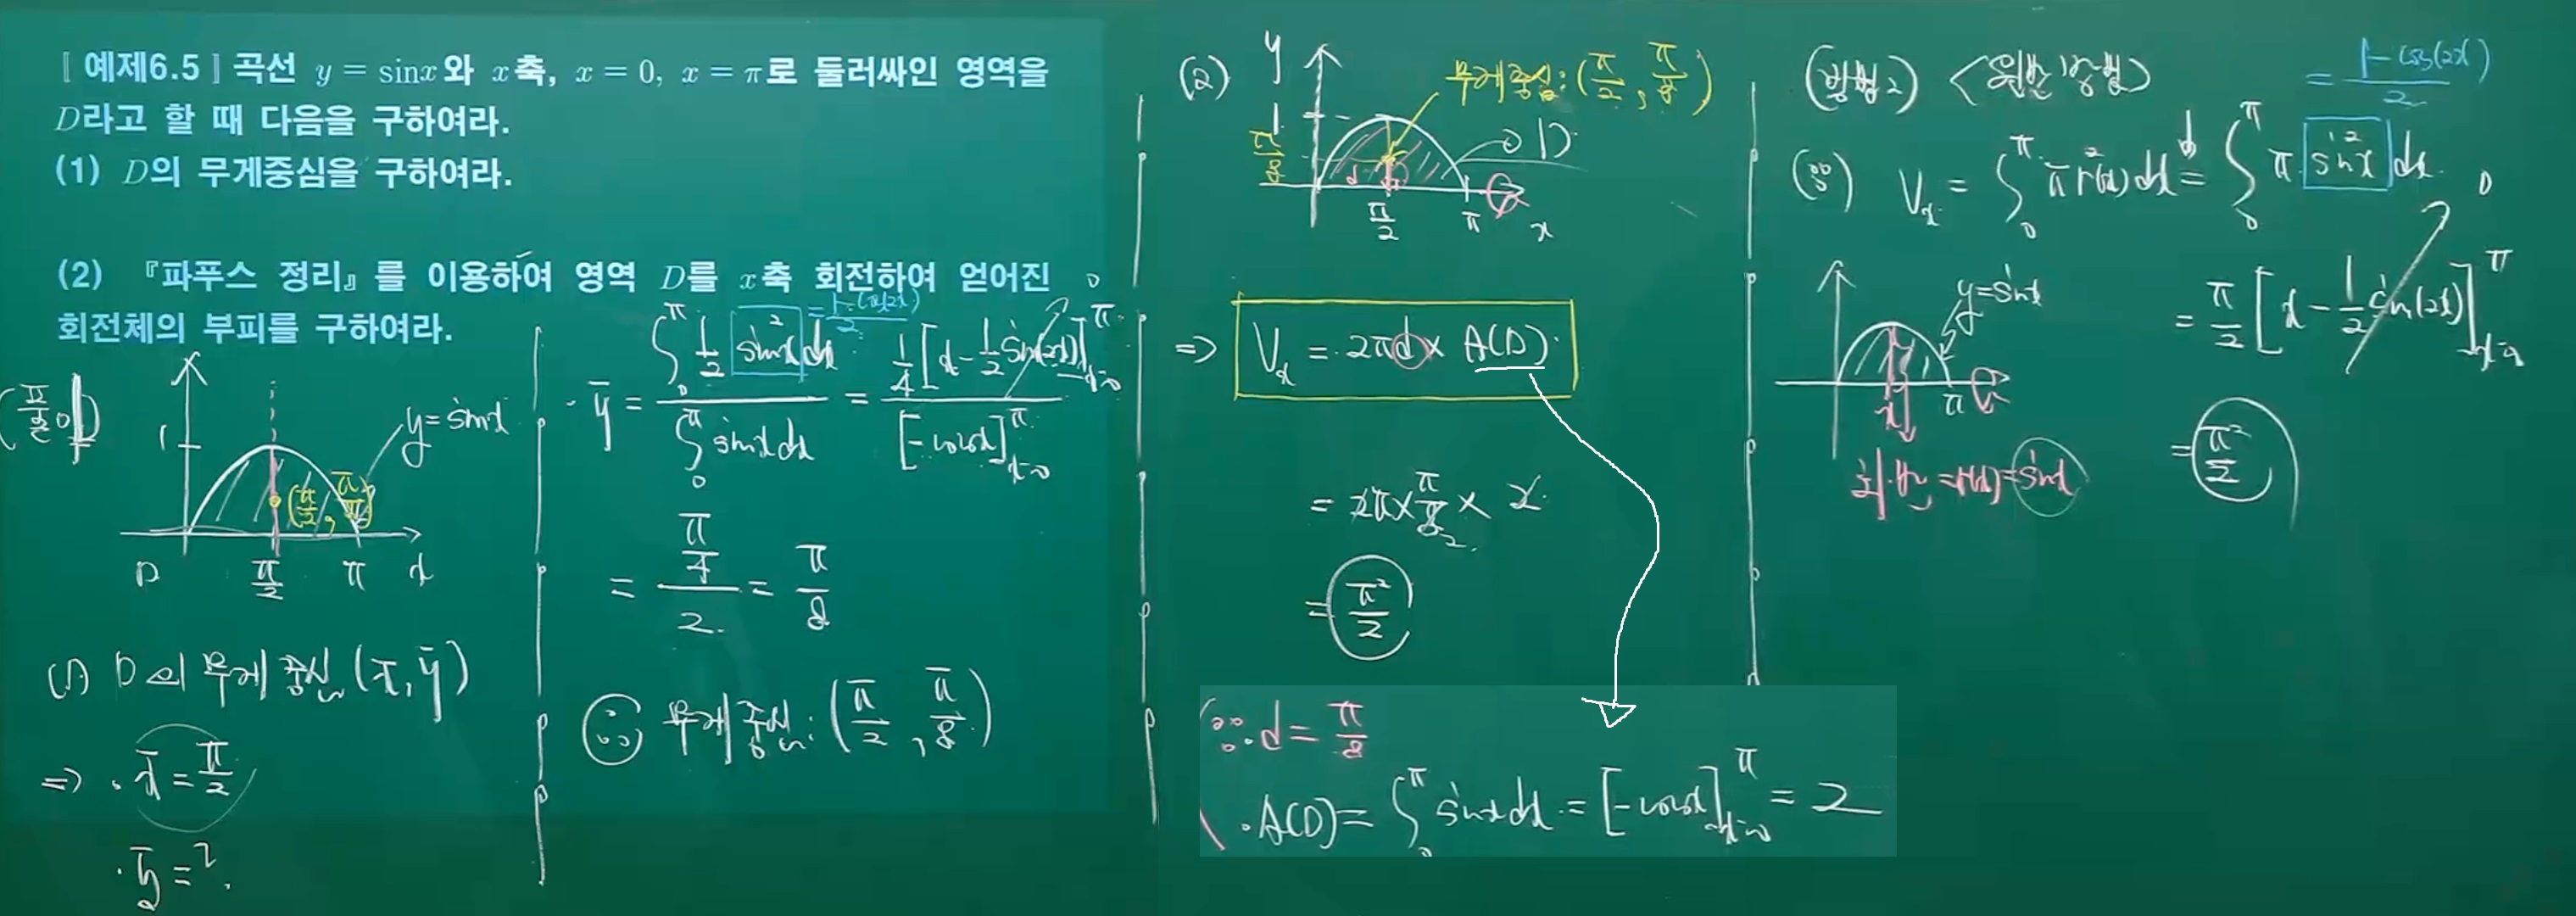 〚 예제6.5 〛 곡선 y = sinx와 x축, x = 0, x = π로 둘러싸인 영역을
D라고 할 때 다음을 구하여라.
(1) D의 무게중심을 구하여라.
(2) 『파푸스 정리』를 이용하여 영역 D를 x축 회전하여 얻어진
회전체의 부피를 구하여라.
1
y=sinx
(π/2, π/8)
D
π/2
π
x
(1) D의 무게중심 (x̄, ȳ)
⇒ · x̄ = π/2
· ȳ = ?
= (1-cos(2x))/2
· ȳ = ∫₀^π ½ sin²x dx / ∫₀^π sinx dx = ¼[x - ½ sin(2x)]_{x=0}^π / [-cosx]_{x=0}^π
0
= (π/4)/2 = π/8
∴ 무게중심: (π/2, π/8)
(2)
y
무게중심: (π/2, π/8)
1
π/8
D
d
π/2
π
x
⇒ Vx = 2πd × A(D)
= 2π × π/8 × 2
2
= π²/2
∵ · d = π/8
· A(D) = ∫₀^π sinx dx = [-cosx]_{x=0}^π = 2
(방법2) <원판방법>
= (1-cos(2x))/2
(∵) Vx = ∫₀^π π r²(x) dx = ∫₀^π π sin²x dx
0
y=sinx
π
x
= r(x) = sinx
= π/2 [x - ½ sin(2x)]_{x=0}^π
= π²/2